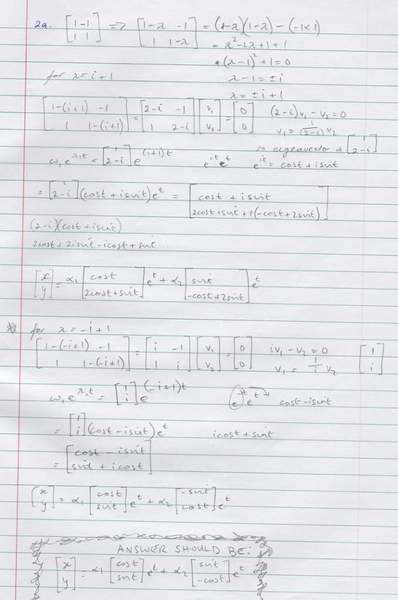 2a. [1 -1; 1 1] => [1-λ -1; 1 1-λ] = (1-λ)(1-λ) - (-1×1)
= λ²-2λ+1=1
*(λ-1)²+1=0
for λ=i+1 λ-1=±i
λ=±i+1
[1-(i+1) -1; 1 1-(i+1)] = [2-i -1; 1 2-i] [v₁; v₂] = [0; 0] (2-i)v₁ - v₂ = 0
v₁ = 1/(2-i) v₂
so eigenvector is [1; 2-i]
w₁e^λ₁t = [1; 2-i] e^(i+1)t e^it e^t e^it = cost + isint
= [1; 2-i] (cost + isint)e^t = [cost + isint; 2cost+sint + i(-cost+2sint)]
(2-i)(cost + isint)
2cost + 2isint - icost + sint
[x; y] = α₁ [cost; 2cost+sint] e^t + α₂ [sint; -cost+2sint] e^t
for λ = -i+1
[1-(-i+1) -1; 1 1-(-i+1)] = [i -1; 1 i] [v₁; v₂] = [0; 0] iv₁ - v₂ = 0 [1; i]
v₁ = 1/i v₂
w₁e^λ₁t = [1; i] e^(-i+1)t cost - isint
= [1; i] (cost - isint)e^t icost + sint
= [cost - isint; sint + icost]
[x; y] = α₁ [cost; sint] e^t + α₂ [-sint; cost] e^t
ANSWER SHOULD BE:
[x; y] = α₁ [cost; sint] e^t + α₂ [sint; -cost] e^t